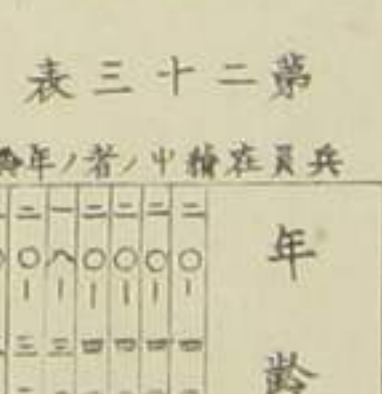 第二十三表
兵員在籍中ノ者ノ年齡
年齡
二〇 | 四
二〇 | 四
二〇 | 四
二〇 | 四
一八 | 三
二〇 | 三